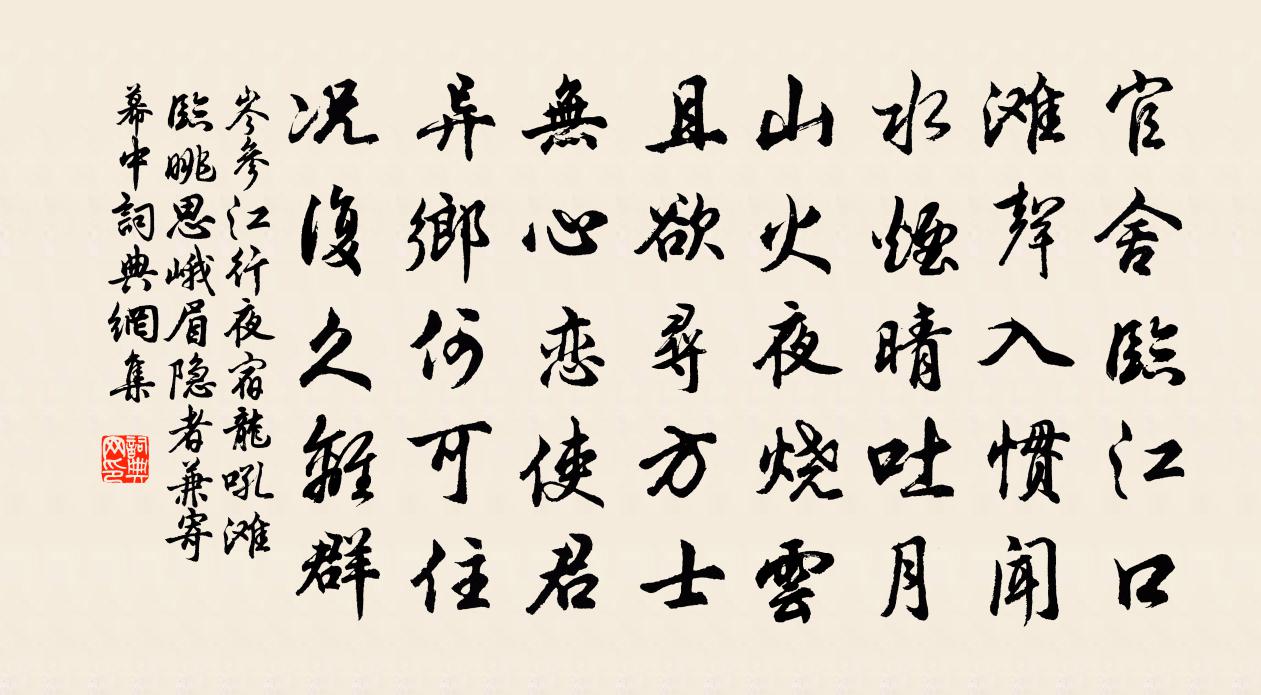 官舍臨江口
滩聲入慣聞
水煙晴吐月
山火夜烧雲
且欲尋方士
無心恋使君
异鄉何可住
况復久離群
岑參江行夜宿龍吼滩
臨眺思峨眉隐者兼寄
幕中詞典網集
詞典网印